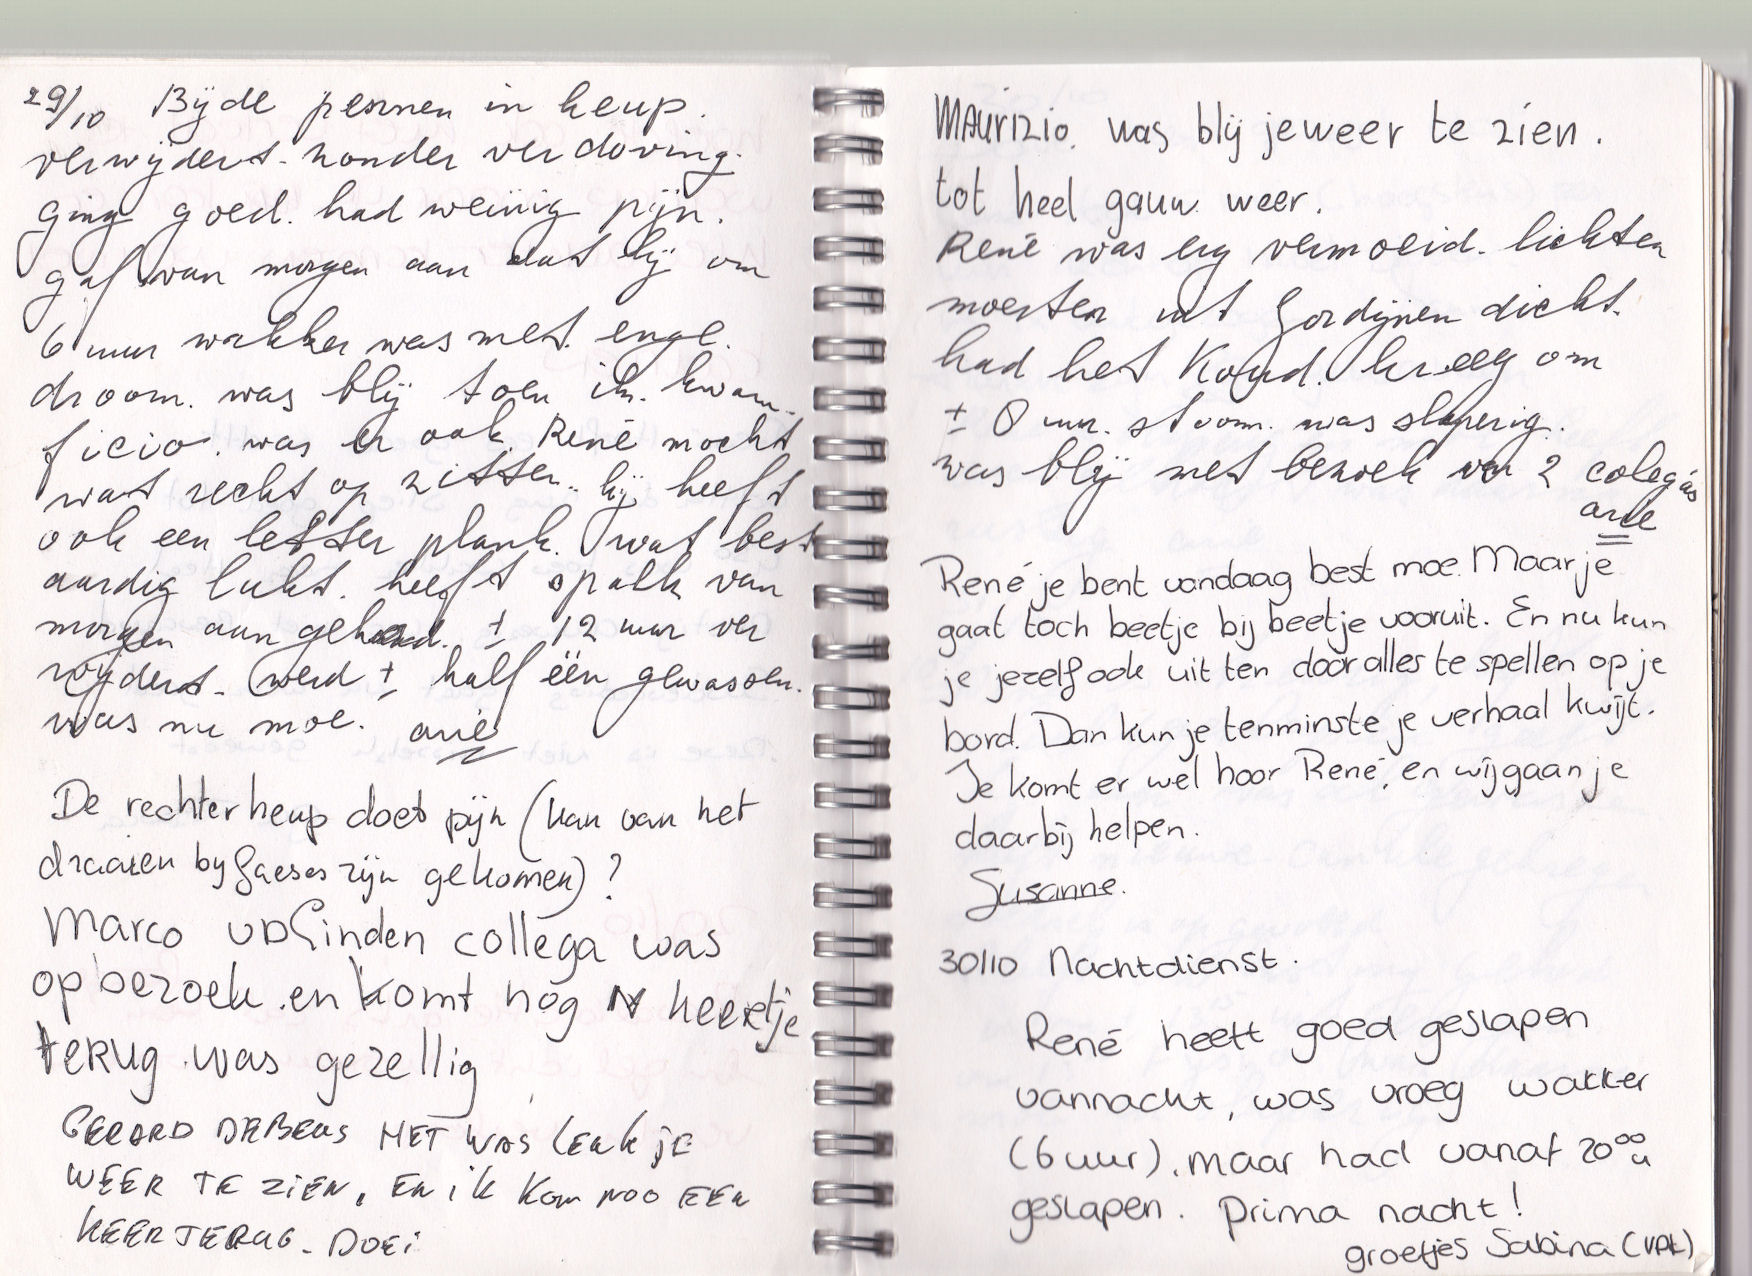 29/10 Bijde pesnnen in heup.
verwijdert. zonder verdoving.
ging goed. had weinig pijn.
gaf van morgen aan dat hij om
6 uur wakker was met. enge.
droom. was blij toen ik. kwam.
ficio. was er ook. René mocht
wat recht op zitten.. hij heeft
ook een letter plank. wat best
aardig lukt. heeft spalk van
morgen aan gehad. ± 12 uur ver
wijdert. werd ± half één gewassen.
was nu moe. arie
De rechter heup doet pijn (kan van het
draaien by gaeses zijn gekomen)?
Marco vd Linden collega was
op bezoek en komt nog N keertje
terug was gezellig
GERARD DEBEUS HET WAS LEUK JE
WEER TE ZIEN, EN ik kom NOG EEN
KEER TERUG. DOEI
MAURIZIO. was blij jeweer te zien.
tot heel gauw weer.
René was erg vermoeid. lichten
moesten uit Gordijnen dicht.
had het Koud. kreeg om
± 8 uur. stoom. was slaperig.
was blij met bezoek van 2 colega's
arie
René je bent vandaag best moe. Maar je
gaat toch beetje bij beetje vooruit. En nu kun
je jezelf ook uit ten door alles te spellen op je
bord. Dan kun je tenminste je verhaal kwijt.
Je komt er wel hoor René, en wij gaan je
daarbij helpen.
Susanne.
30/10 Nachtdienst.
René heeft goed geslapen
vannacht, was vroeg wakker
(6 uur), maar had vanaf 20⁰⁰u
geslapen. Prima nacht!
groetjes Sabina (VPK)